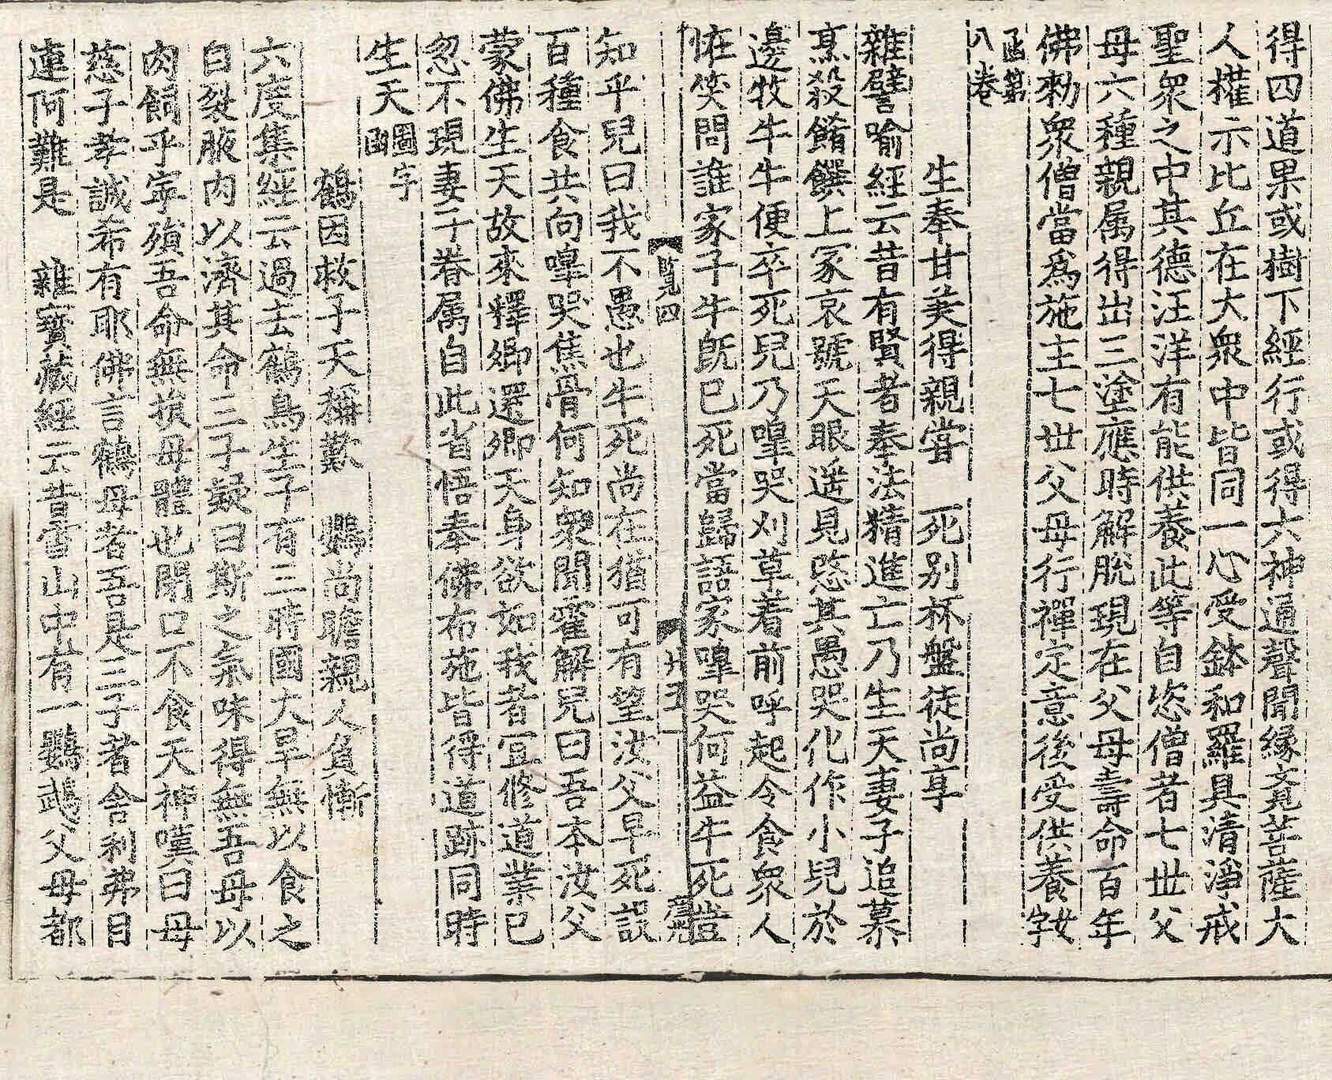 得四道果或樹下經行或得六神通聲聞緣覺菩薩大
人權示比丘在大衆中皆同一心受鉢和羅具清淨戒
聖衆之中其德汪洋有能供養此等自恣僧者七丗父
母六種親属得出三塗應時解脫現在父母壽命百年
佛勑衆僧當爲施主七丗父母行禪定意後受供養女字
函第
八卷
生奉甘美得親甞 死別杯盤徒尚享
雜譬喻經云昔有賢者奉法精進亡乃生天妻子追慕
烹殺餚饌上冢哀號天眼遥見愍其愚哭化作小兒於
邊牧牛牛便卒死兒乃嘷哭刈草着前呼起令食衆人
恠笑問誰家子牛旣已死當歸語家嘷哭何益牛死豈
覧四 廿五
知乎兒曰我不愚也牛死尚在猶可有望汝父早死設
百種食共向嘷哭焦骨何知衆聞霍解兒曰吾本汝父
蒙佛生天故來釋卿還卿天身欲如我者宜修道業已
忽不現妻子眷属自此省悟奉佛布施皆得道跡同時
生天圖字函
鶴因救子天稱歎 鸚尚瞻親人負慚
六度集經云過去鶴鳥生子有三時國大旱無以食之
自裂腋肉以濟其命三子疑曰斯之氣味得無吾母以
肉餇乎寜殞吾命無損母體也閉口不食天神嘆曰母
慈子孝誠希有耶佛言鶴母者吾是三子者舍利弗目
連阿難是 雜寳藏經云昔雪山中有一鸚鵡父母都